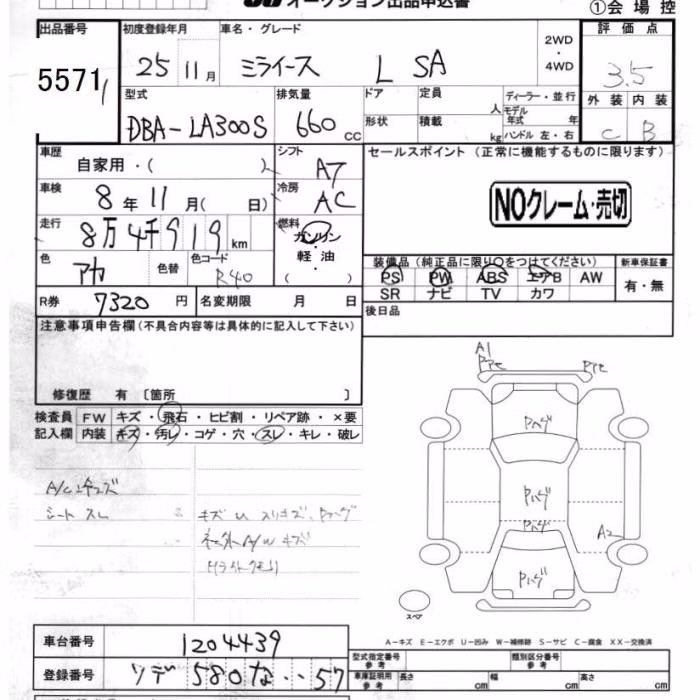 オークション出品申込書
①会場控
出品番号 初度登録年月 車名・グレード 評価点
5571 25 11月 ミライース L SA 2WD・4WD 3.5
型式 排気量 ドア 定員 人 ディーラー・並行 外装 内装
DBA-LA300S 660cc 形状 積載 kg モデル年式 年 ハンドル 左・右 C B
車歴 自家用・( ) シフト A7 セールスポイント (正常に機能するものに限ります)
車検 8年11月( 日) 冷房 AC NOクレーム・売切
走行 8万4千919km 燃料 ガソリン・軽油 ( )
装備品 (純正品に限り○をつけてください) 新車保証書
色 アカ 色替 色コード R40 PS PW ABS エアB AW 有・無
SR ナビ TV カワ
R券 7320円 名変期限 月 日 後日品
注意事項申告欄 (不具合内容等は具体的に記入して下さい)
修復歴 有 〔箇所 〕
検査員 FW キズ・飛石・ヒビ割・リペア跡・×要
記入欄 内装 キズ・汚レ・コゲ・穴・スレ・キレ・破レ
シート スレ
A1
Pハゲ
Pハゲ
Pハゲ
A2
Pハゲ
スペア
A－キズ E－エクボ U－凹み W－補修跡 S－サビ C－腐食 XX－交換済
車台番号 1204439 型式指定番号 参考 類別区分番号 参考
登録番号 ソデ 580 な ・・57 車庫証明用 参考 長さ cm 幅 cm 高さ cm